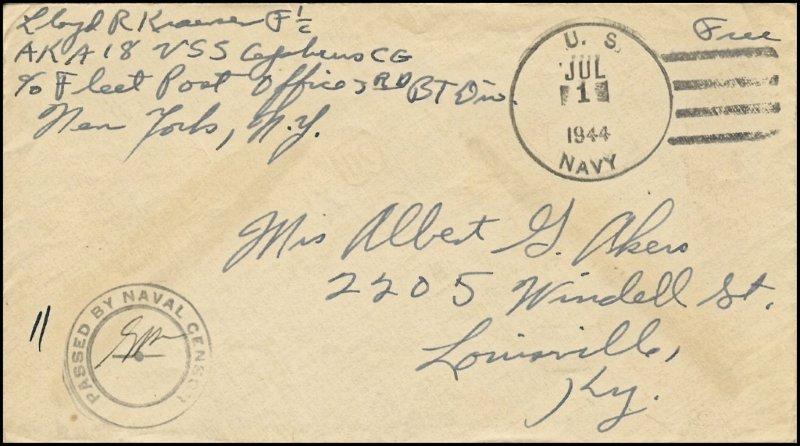 Lloyd R Kraener F 1/c
AKA 18 USS Cepheus CG
c/o Fleet Post Office 3RD BT Div.
New York, N.Y.
U. S.
JUL
1
1944
NAVY
Free
Mrs Albert G. Akers
2205 Windell St.
Louisville,
Ky.
PASSED BY NAVAL CENSOR
11